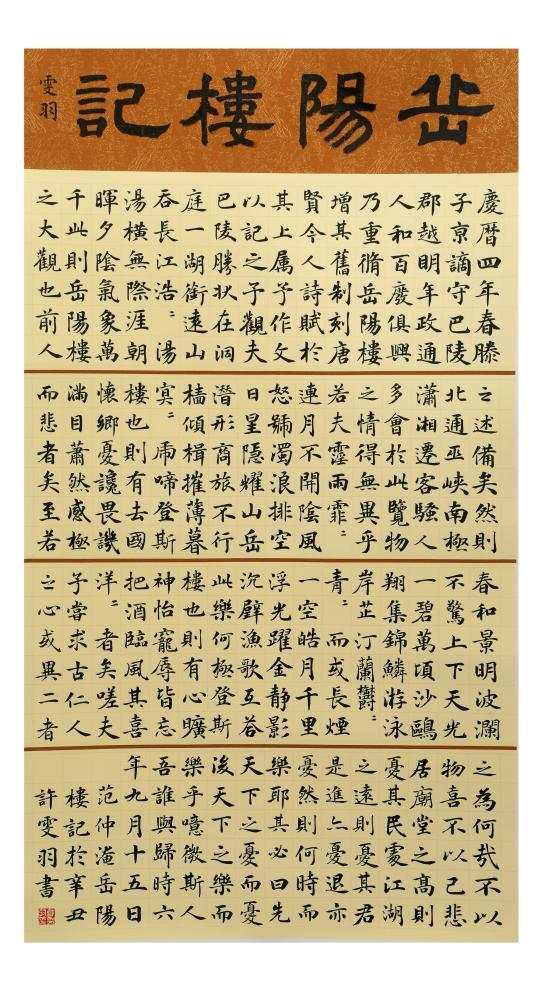 岳陽樓記
雯羽
慶曆四年春滕
子京謫守巴陵
郡越明年政通
人和百廢俱興
乃重脩岳陽樓
增其舊制刻唐
賢今人詩賦於
其上属予作文
以記之予觀夫
巴陵勝状在洞
庭一湖銜遠山
吞長江浩〻湯
湯横無際涯朝
暉夕陰氣象萬
千此則岳陽樓
之大觀也前人
之述備矣然則
北通巫峡南極
瀟湘遷客騷人
多會於此覽物
之情得無異乎
若夫霪雨霏〻
連月不開陰風
怒號濁浪排空
日星隱耀山岳
潛形商旅不行
檣傾楫摧薄暮
冥〻虎啼登斯
樓也則有去國
懷鄉憂讒畏譏
滿目蕭然感極
而悲者矣至若
春和景明波瀾
不驚上下天光
一碧萬頃沙鷗
翔集錦鱗游泳
岸芷汀蘭鬱〻
青〻而或長煙
一空皓月千里
浮光躍金静影
沉璧漁歌互答
此樂何極登斯
樓也則有心曠
神怡寵辱皆忘
把酒臨風其喜
洋〻者矣嗟夫
予嘗求古仁人
之心或異二者
之為何哉不以
物喜不以己悲
居廟堂之高則
憂其民處江湖
之遠則憂其君
是進亦憂退亦
憂然則何時而
樂耶其必曰先
天下之憂而憂
後天下之樂而
樂乎噫微斯人
吾誰與歸時六
年九月十五日
范仲淹岳陽
樓記於辛丑
許雯羽書